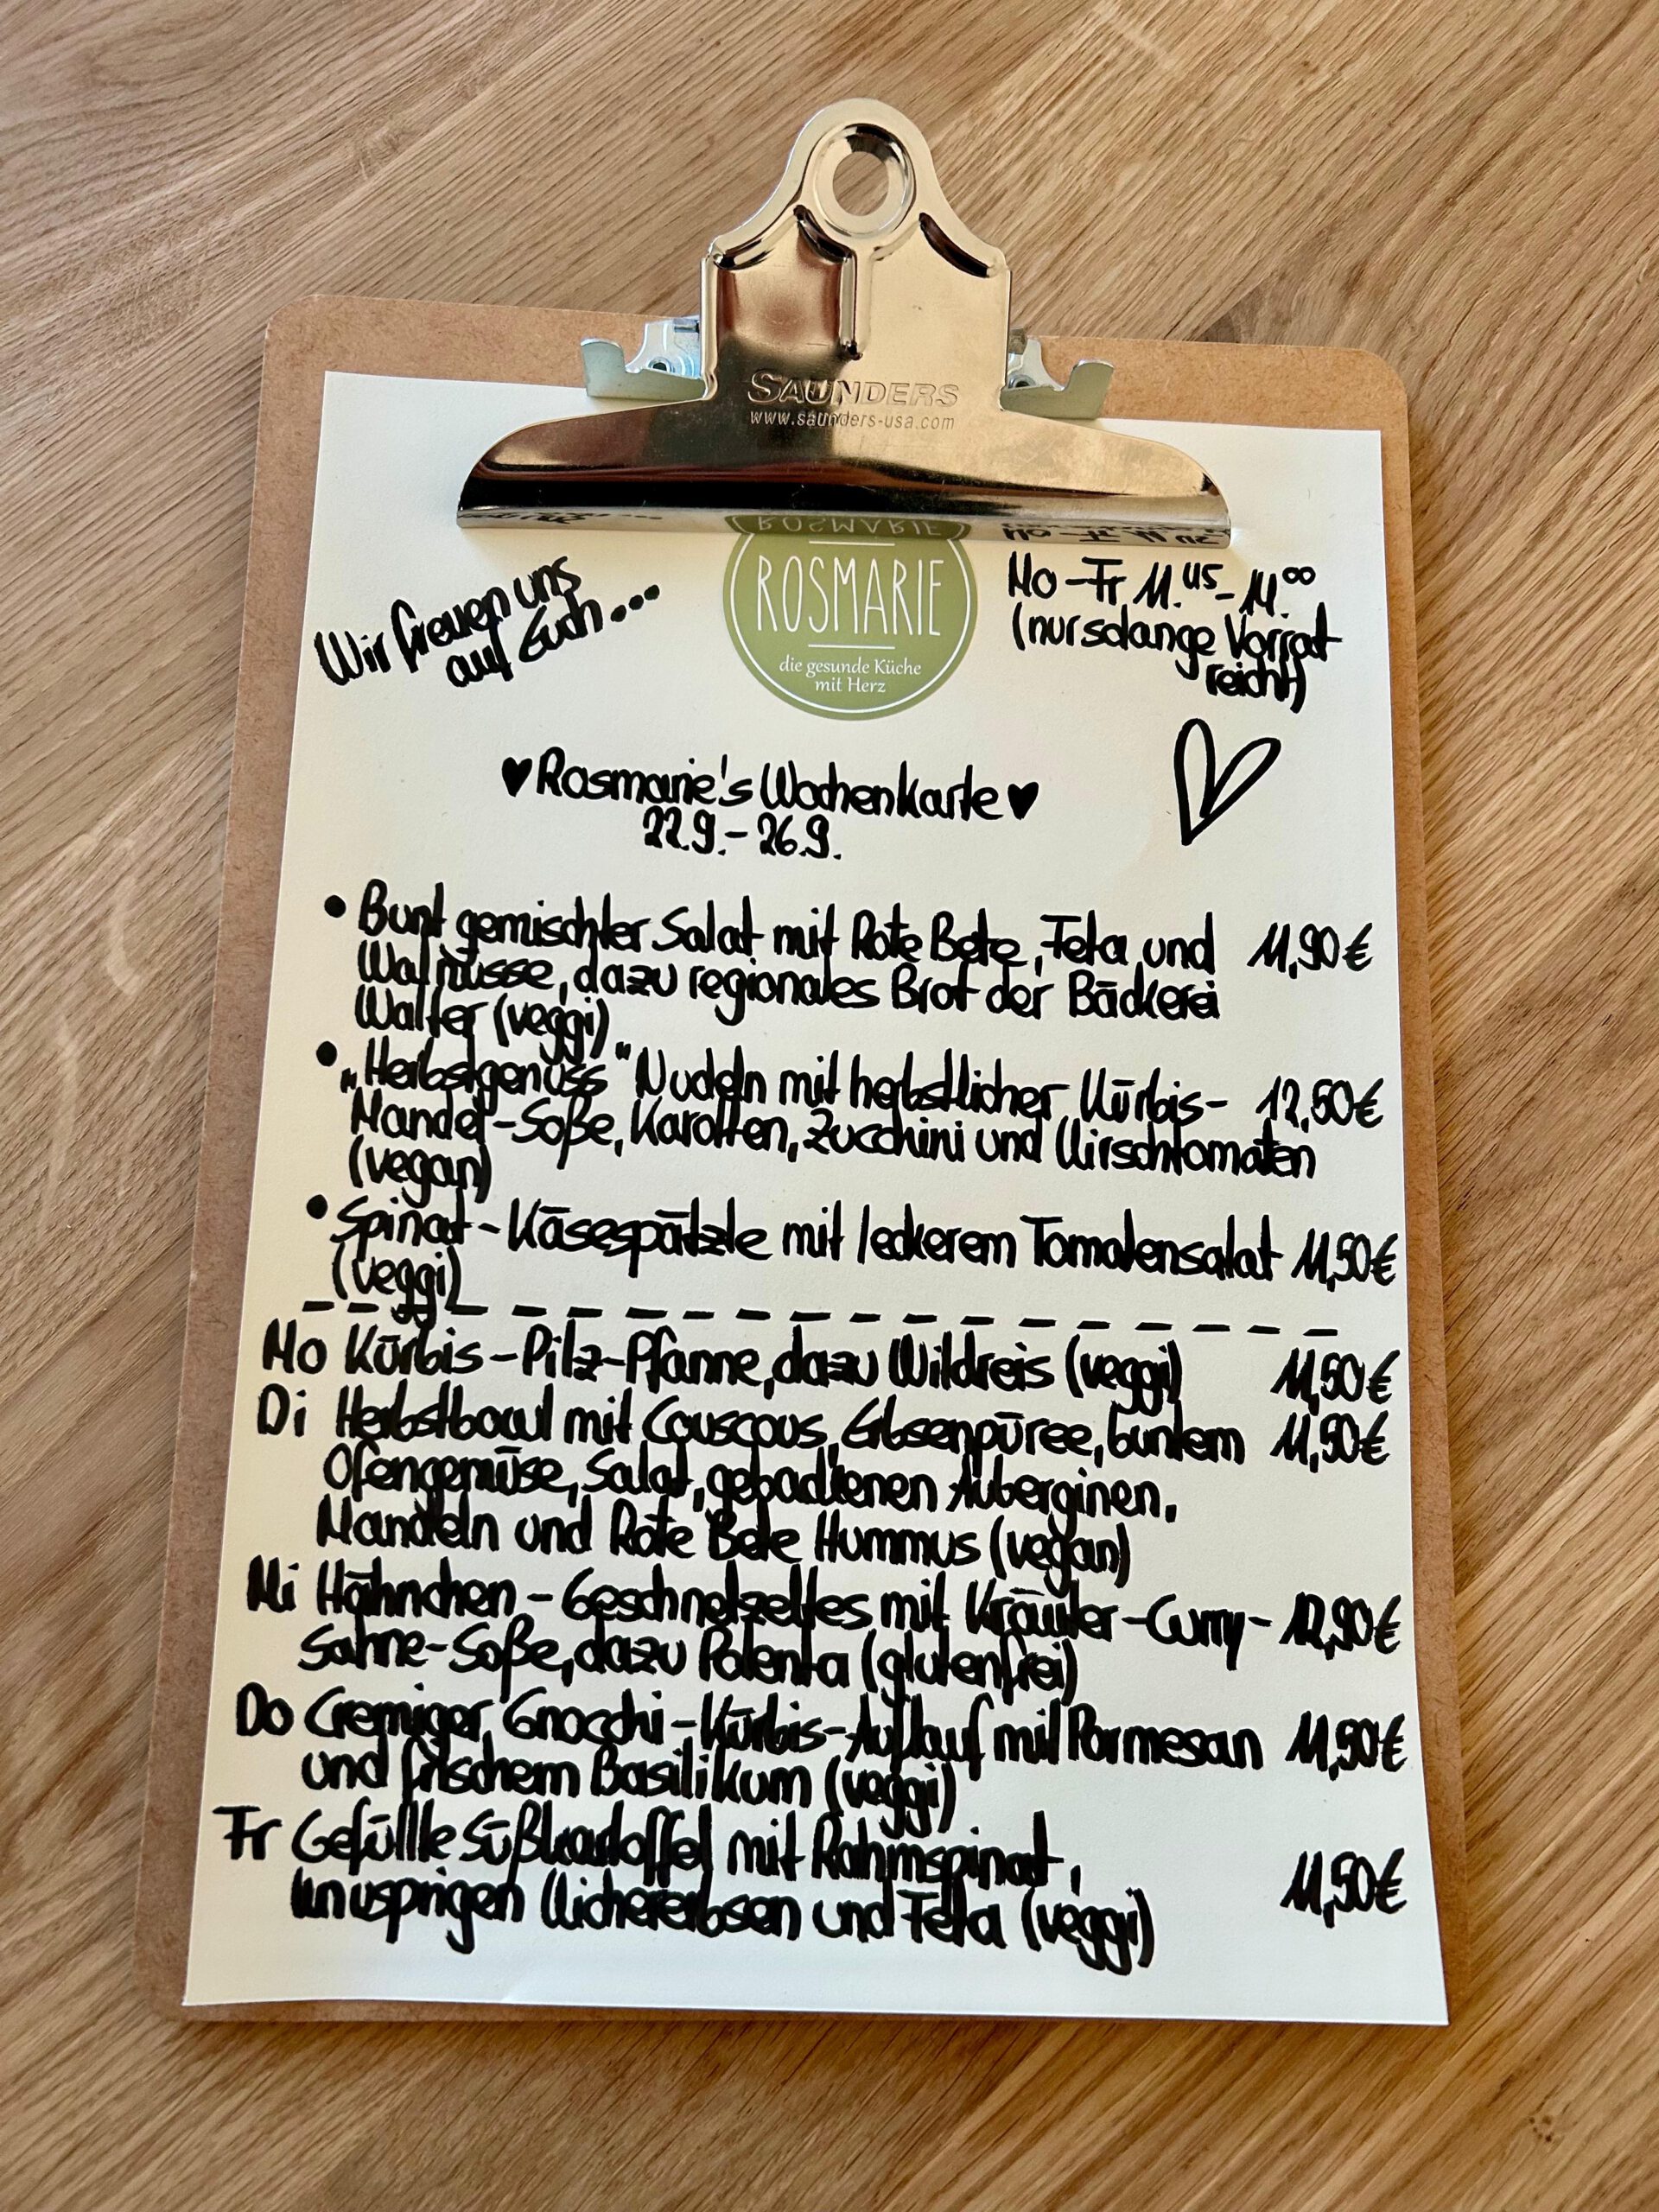 SAUNDERS
www.saunders-usa.com
Wir freuen uns
auf Euch...
ROSMARIE
die gesunde Küche
mit Herz
Mo-Fr 11.45-14.00
(nur solange Vorrat
reicht)
♥Rosmarie's Wochenkarte♥
22.9.-26.9.
• Bunt gemischter Salat mit Rote Bete, Feta und 11,90€
Walnüsse, dazu regionales Brot der Bäckerei
Walter (veggi)
• „Herbstgenuss" Nudeln mit herbstlicher Kürbis- 12,50€
Mandel-Soße, Karotten, Zucchini und Kirschtomaten
(vegan)
• Spinat-Käsespätzle mit leckerem Tomatensalat 11,50€
(veggi)
Mo Kürbis-Pilz-Pfanne, dazu Wildreis (veggi) 11,50€
Di Herbstbowl mit Couscous, Erbsenpüree, buntem 11,50€
Ofengemüse, Salat, gebackenen Auberginen,
Mandeln und Rote Bete Hummus (vegan)
Mi Hähnchen-Geschnetzeltes mit Kräuter-Curry- 12,90€
Sahne-Soße, dazu Polenta (glutenfrei)
Do Cremiger Gnocchi-Kürbis-Auflauf mit Parmesan 11,50€
und frischem Basilikum (veggi)
Fr Gefüllte Süßkartoffel mit Rahmspinat, 11,50€
knusprigen Kichererbsen und Feta (veggi)